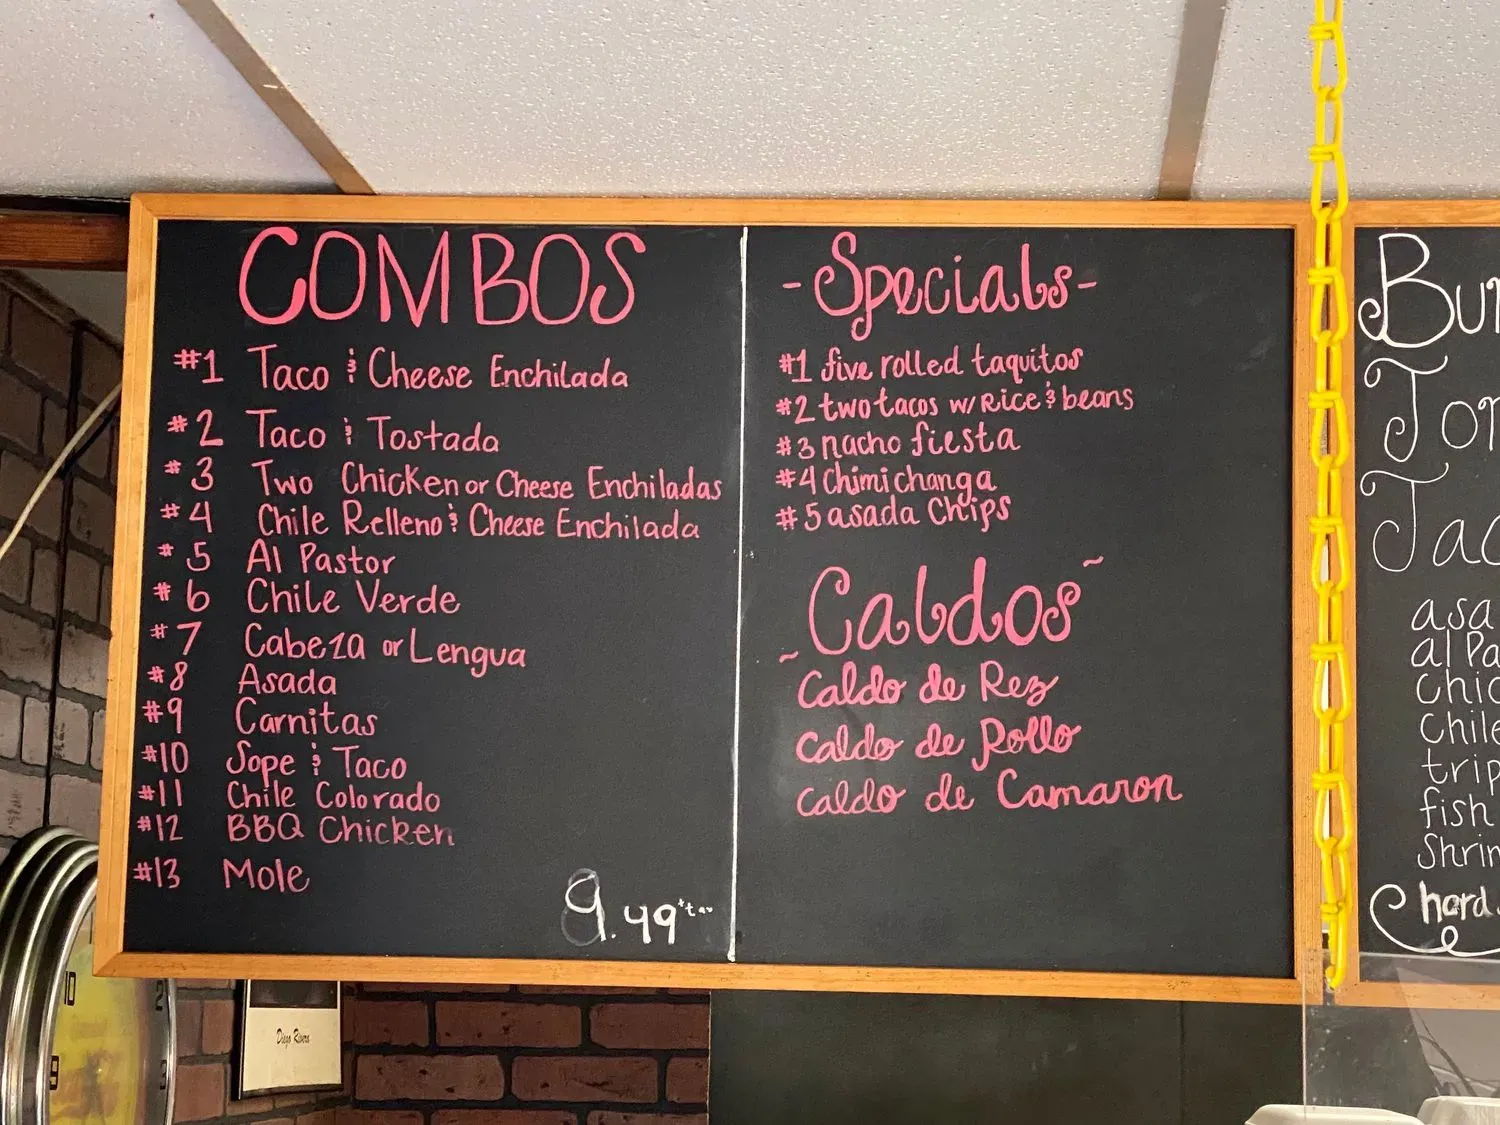 COMBOS
#1 Taco & Cheese Enchilada
#2 Taco & Tostada
#3 Two Chicken or Cheese Enchiladas
#4 Chile Relleno & Cheese Enchilada
#5 Al Pastor
#6 Chile Verde
#7 Cabeza or Lengua
#8 Asada
#9 Carnitas
#10 Sope & Taco
#11 Chile Colorado
#12 BBQ Chicken
#13 Mole
9.49 +tax
-Specials-
#1 five rolled taquitos
#2 two tacos w/ Rice & beans
#3 nacho fiesta
#4 chimichanga
#5 asada Chips
~Caldos~
Caldo de Rez
Caldo de Pollo
Caldo de Camaron
Bur
Tor
Tac
asa
al Pa
Chic
Chile
trip
fish
Shrim
hard
Diego Rivera
10
2
9
3